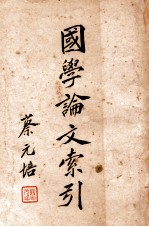 國學論文索引
蔡元培